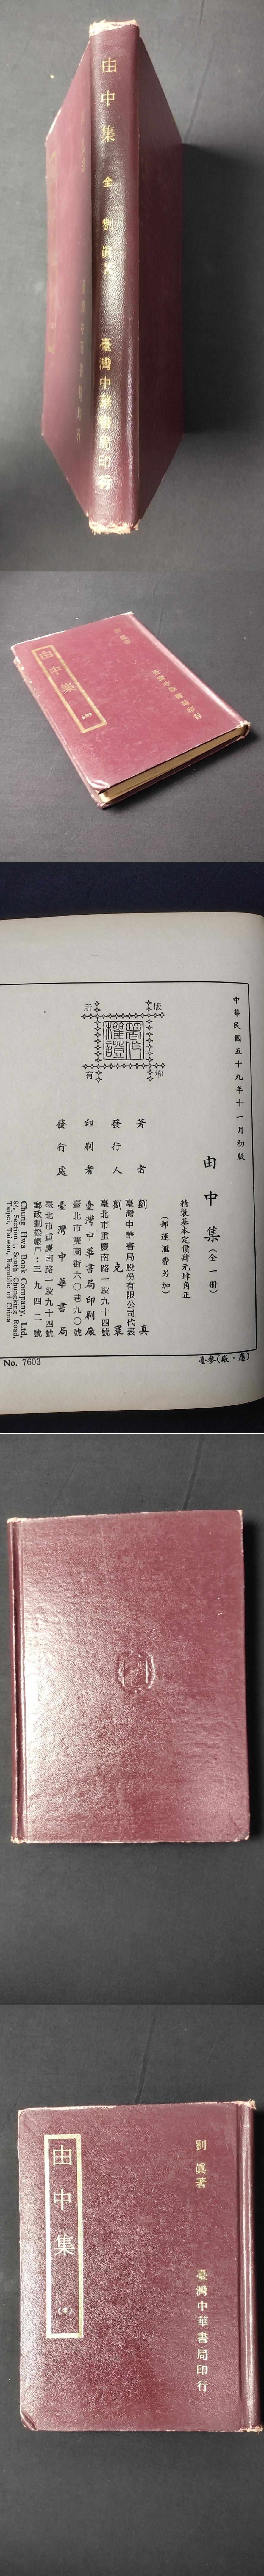 由中集 全 劉眞著 臺灣中華書局印行
由中集
劉眞著
臺灣中華書局印行
中華民國五十九年十一月初版
由中集(全一册)
精裝基本定價肆元肆角正
(郵運滙費另加)
著者 劉眞
發行人 劉克寰
臺灣中華書局股份有限公司代表
臺北市重慶南路一段九十四號
印刷者 臺灣中華書局印刷廠
臺北市雙園街六〇巷九〇號
發行處 臺灣中華書局
臺北市重慶南路一段九十四號
郵政劃撥帳戶:三九四二號
Chung Hwa Book Company, Ltd.
94, Section 1, South Chungking Road,
Taipei, Taiwan, Republic of China
版權所有
No. 7603
臺參(廠·應)
劉眞著
臺灣中華書局印行
由中集
(全)